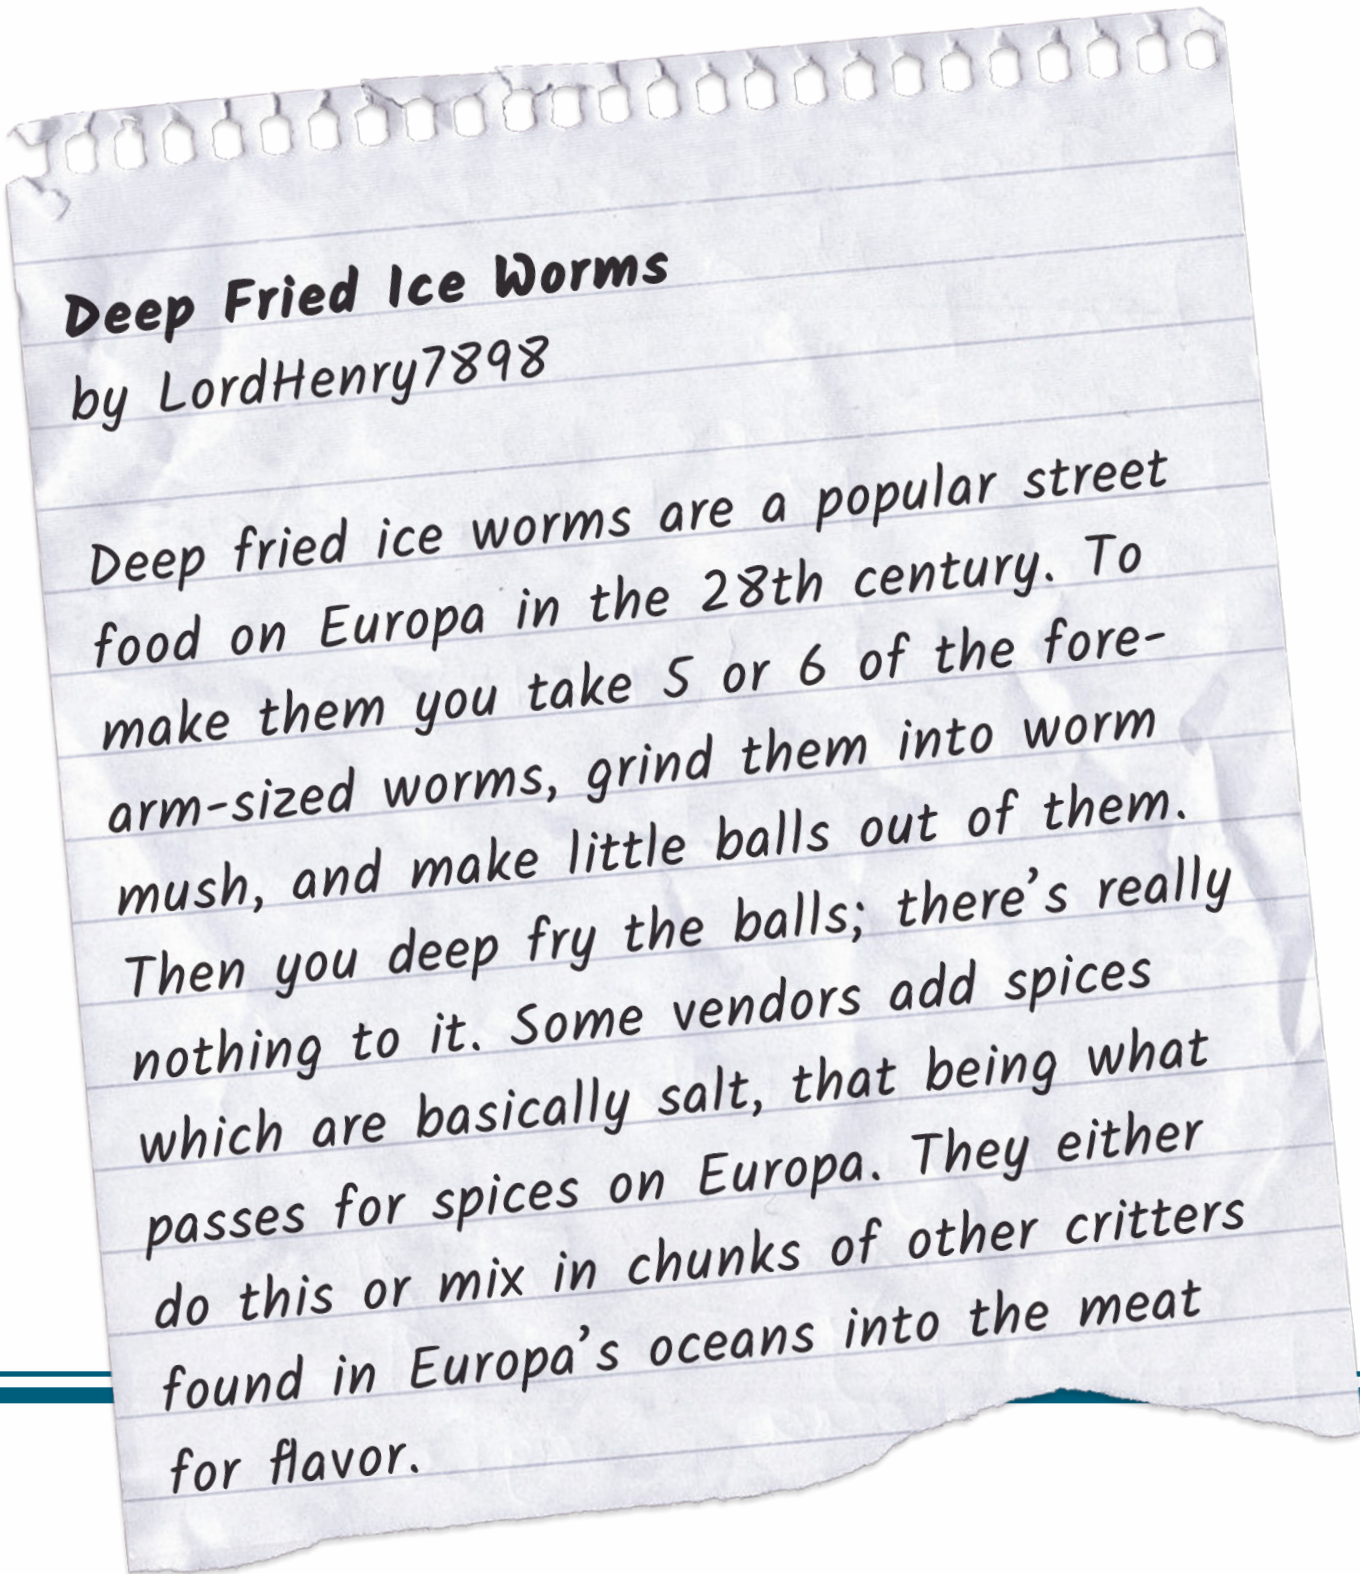 Deep Fried Ice Worms
by LordHenry7898
Deep fried ice worms are a popular street
food on Europa in the 28th century. To
make them you take 5 or 6 of the fore-
arm-sized worms, grind them into worm
mush, and make little balls out of them.
Then you deep fry the balls; there's really
nothing to it. Some vendors add spices
which are basically salt, that being what
passes for spices on Europa. They either
do this or mix in chunks of other critters
found in Europa's oceans into the meat
for flavor.